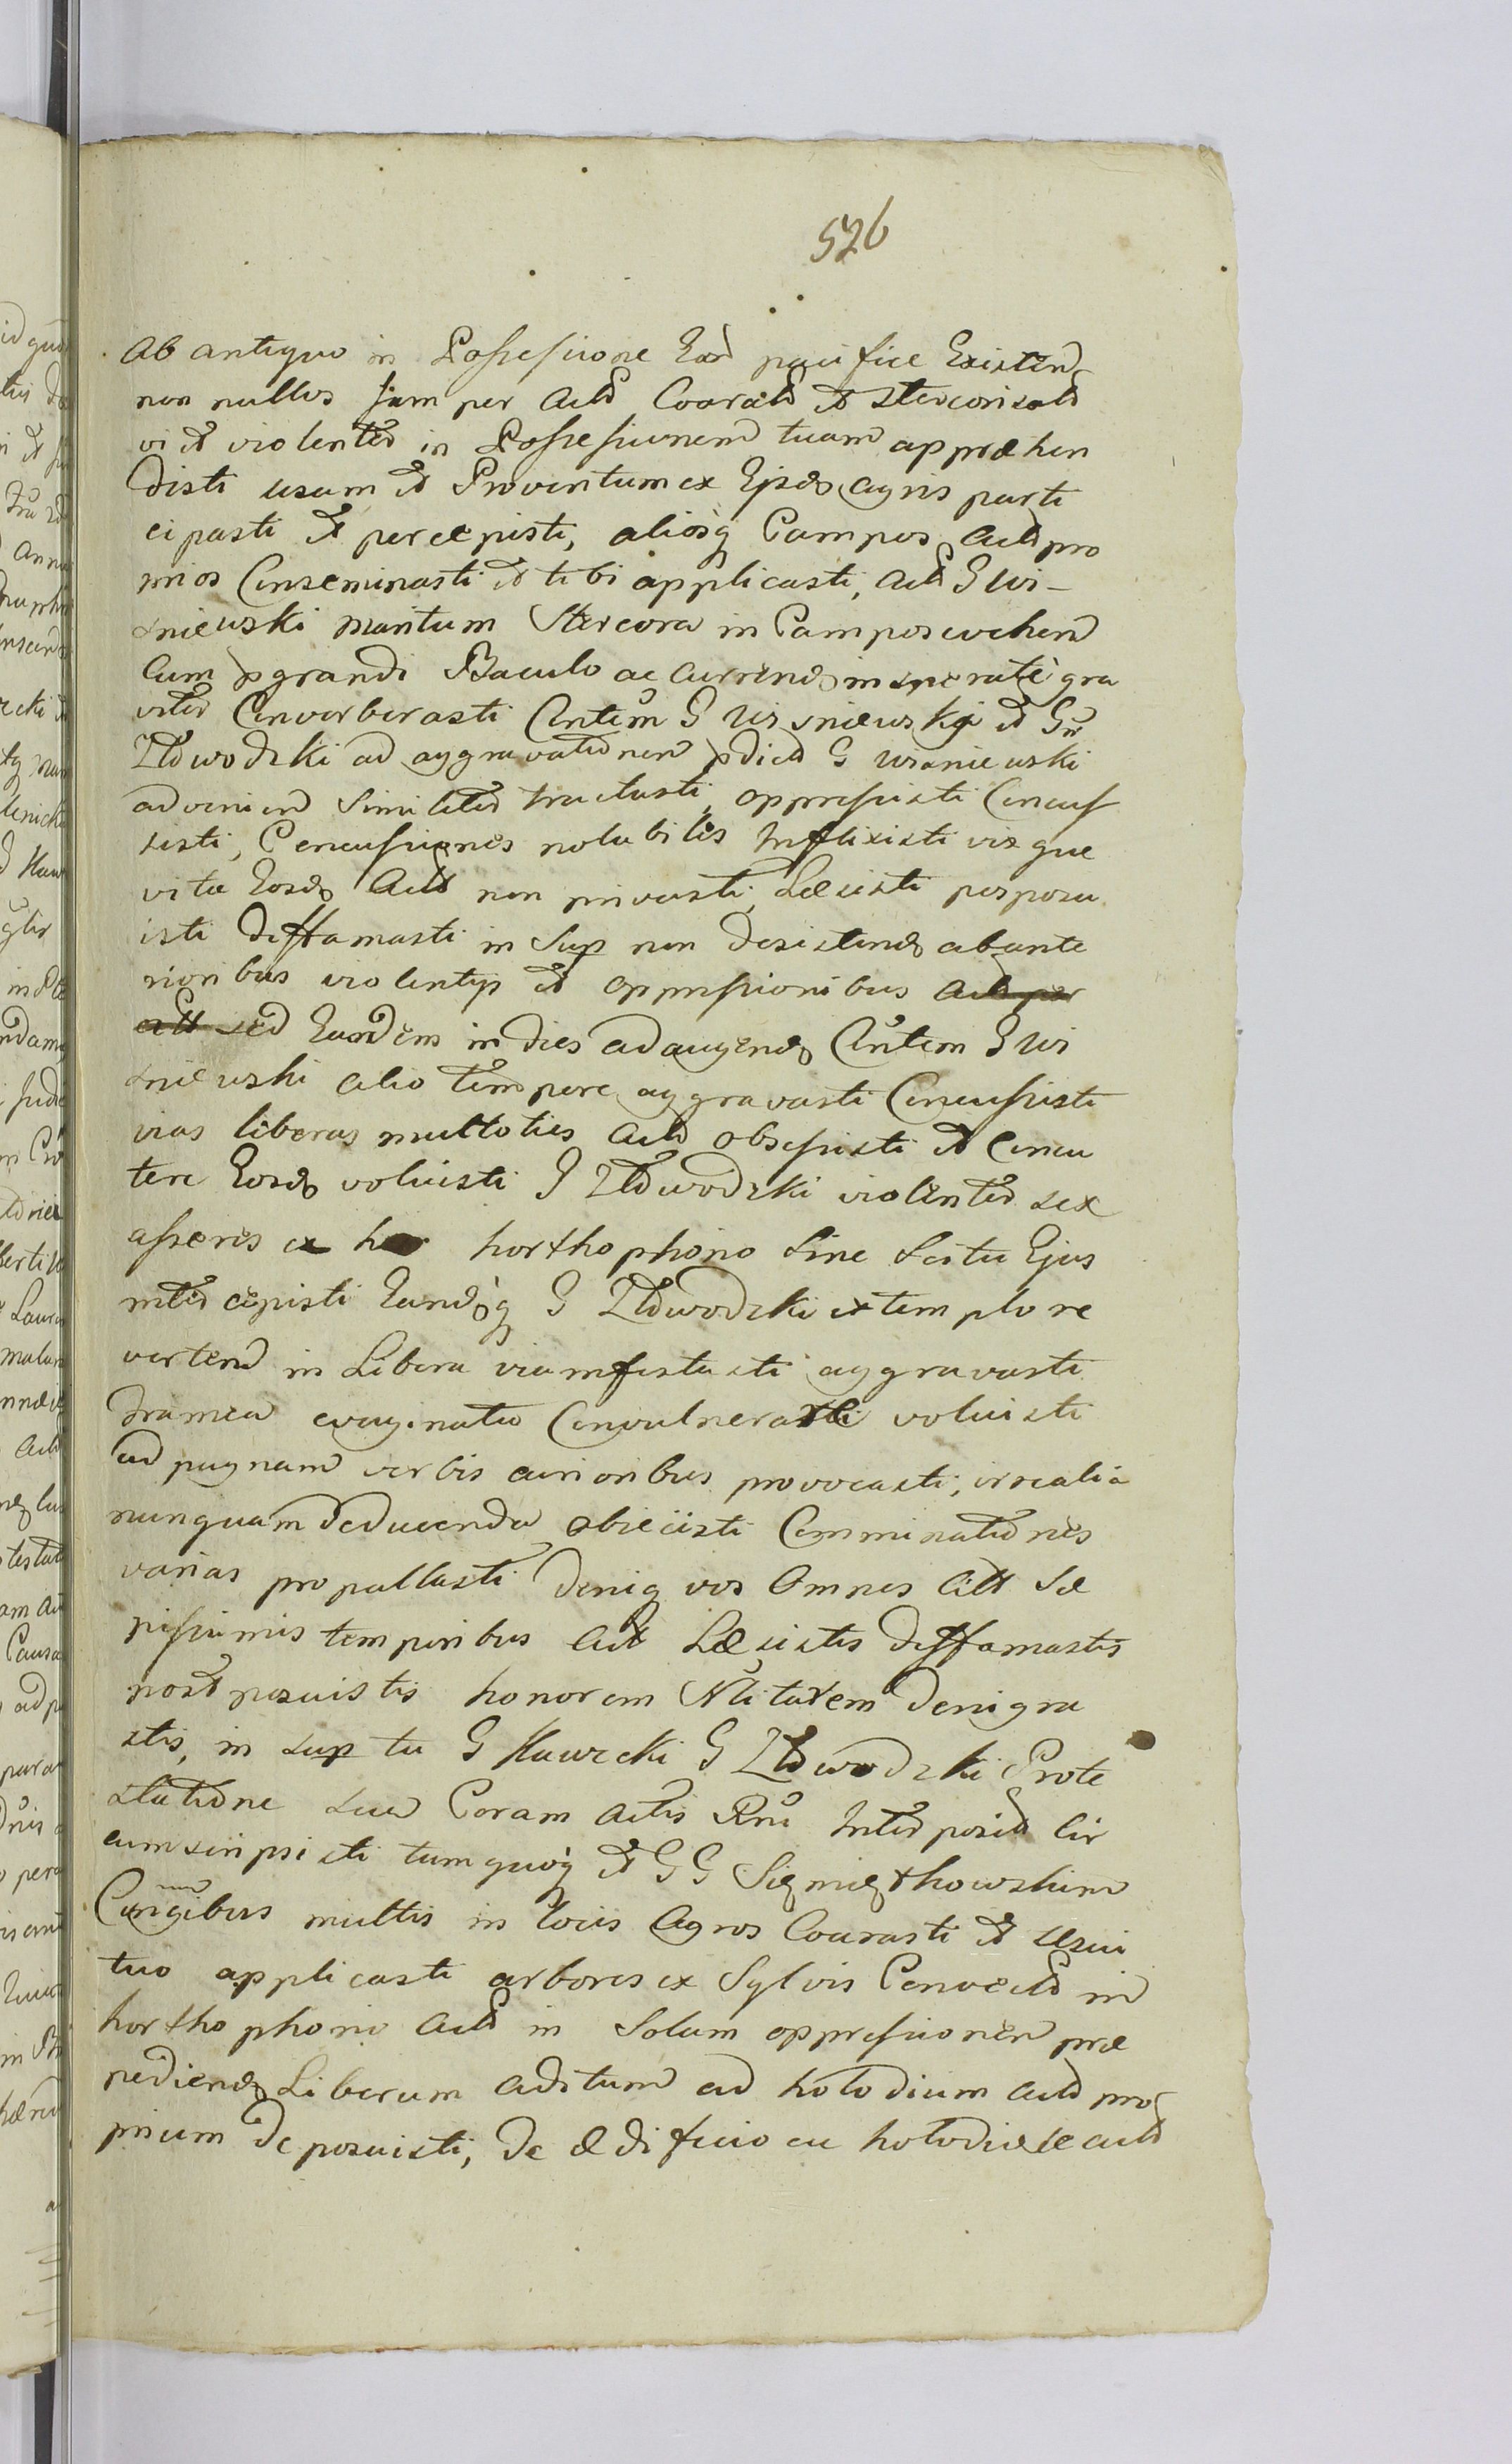 526
ab antiquo in Possessione Eand pacifice Existend
non nullos jam per Actt Coaratt et stercorisatt
vi et violenter in Possessionem tuam appræhen
disti usum et Proventum ex Ejsdo agris parti
cipasti et percepisti, aliosq Campos Actt pro
prios Conseminasti et tibi applicasti, Actt G Wi-
sniewski maritum Stercora in Campos evehend
Cum prgrandi Baculo accurrendo insperatè gra
viter Converberasti Antem G Wisniewski et Gr
Zdwodzki ad aggravationem pdict G Wisniewski
advenien Similiter tractasti, oppressisti Concus
sisti, Concussiones notabiles Inflixisti vix que
vita Eosdo Actt non privasti, Læsisti posposu
isti diffamasti in Sup non desistendo ab ante
rioribus violentys et oppressionibus
sed Eandem in dies adaugendo Antem G Wi
sniewski alio tempore aggravasti Concussisti
vias liberas multoties Actt obsessisti et Concu
tere Eosdo voluisti G Zdwodzki violenter sex
asseres ex horthophono Sine Scitu Ejus
mter cepisti Eundoq G Zdwodzki ex templo re
vertend in Libera via infestasti aggravasti
framea evaginata Convulnerare voluisti
ad pugnam verbis acrioribus provocasti, irrealia
nunquam deducenda obiecisti Comminationes
varias propallasti Deniq vos Omnes Citt Sæ
pissimis temporibus Actt Læsistis diffamastis
post posuistis honorem Nlitatem denigra
stis, in sup tu G Kawecki G Zdwodzki Prote
statione sua Coram Actis Rni Inter posit Cir
cumscripsisti tum quoq et G G Siemietkowskim
Congibus multis in locis Agros Coarasti et usui
tuo applicasti arbores ex Sylvis Convectt in
horthophono Actt in Solam oppressionem præ
pediendo Liberum aditum ad hotodium Actt pro
prium deposuisti, de ædificio in hotodio se Actt